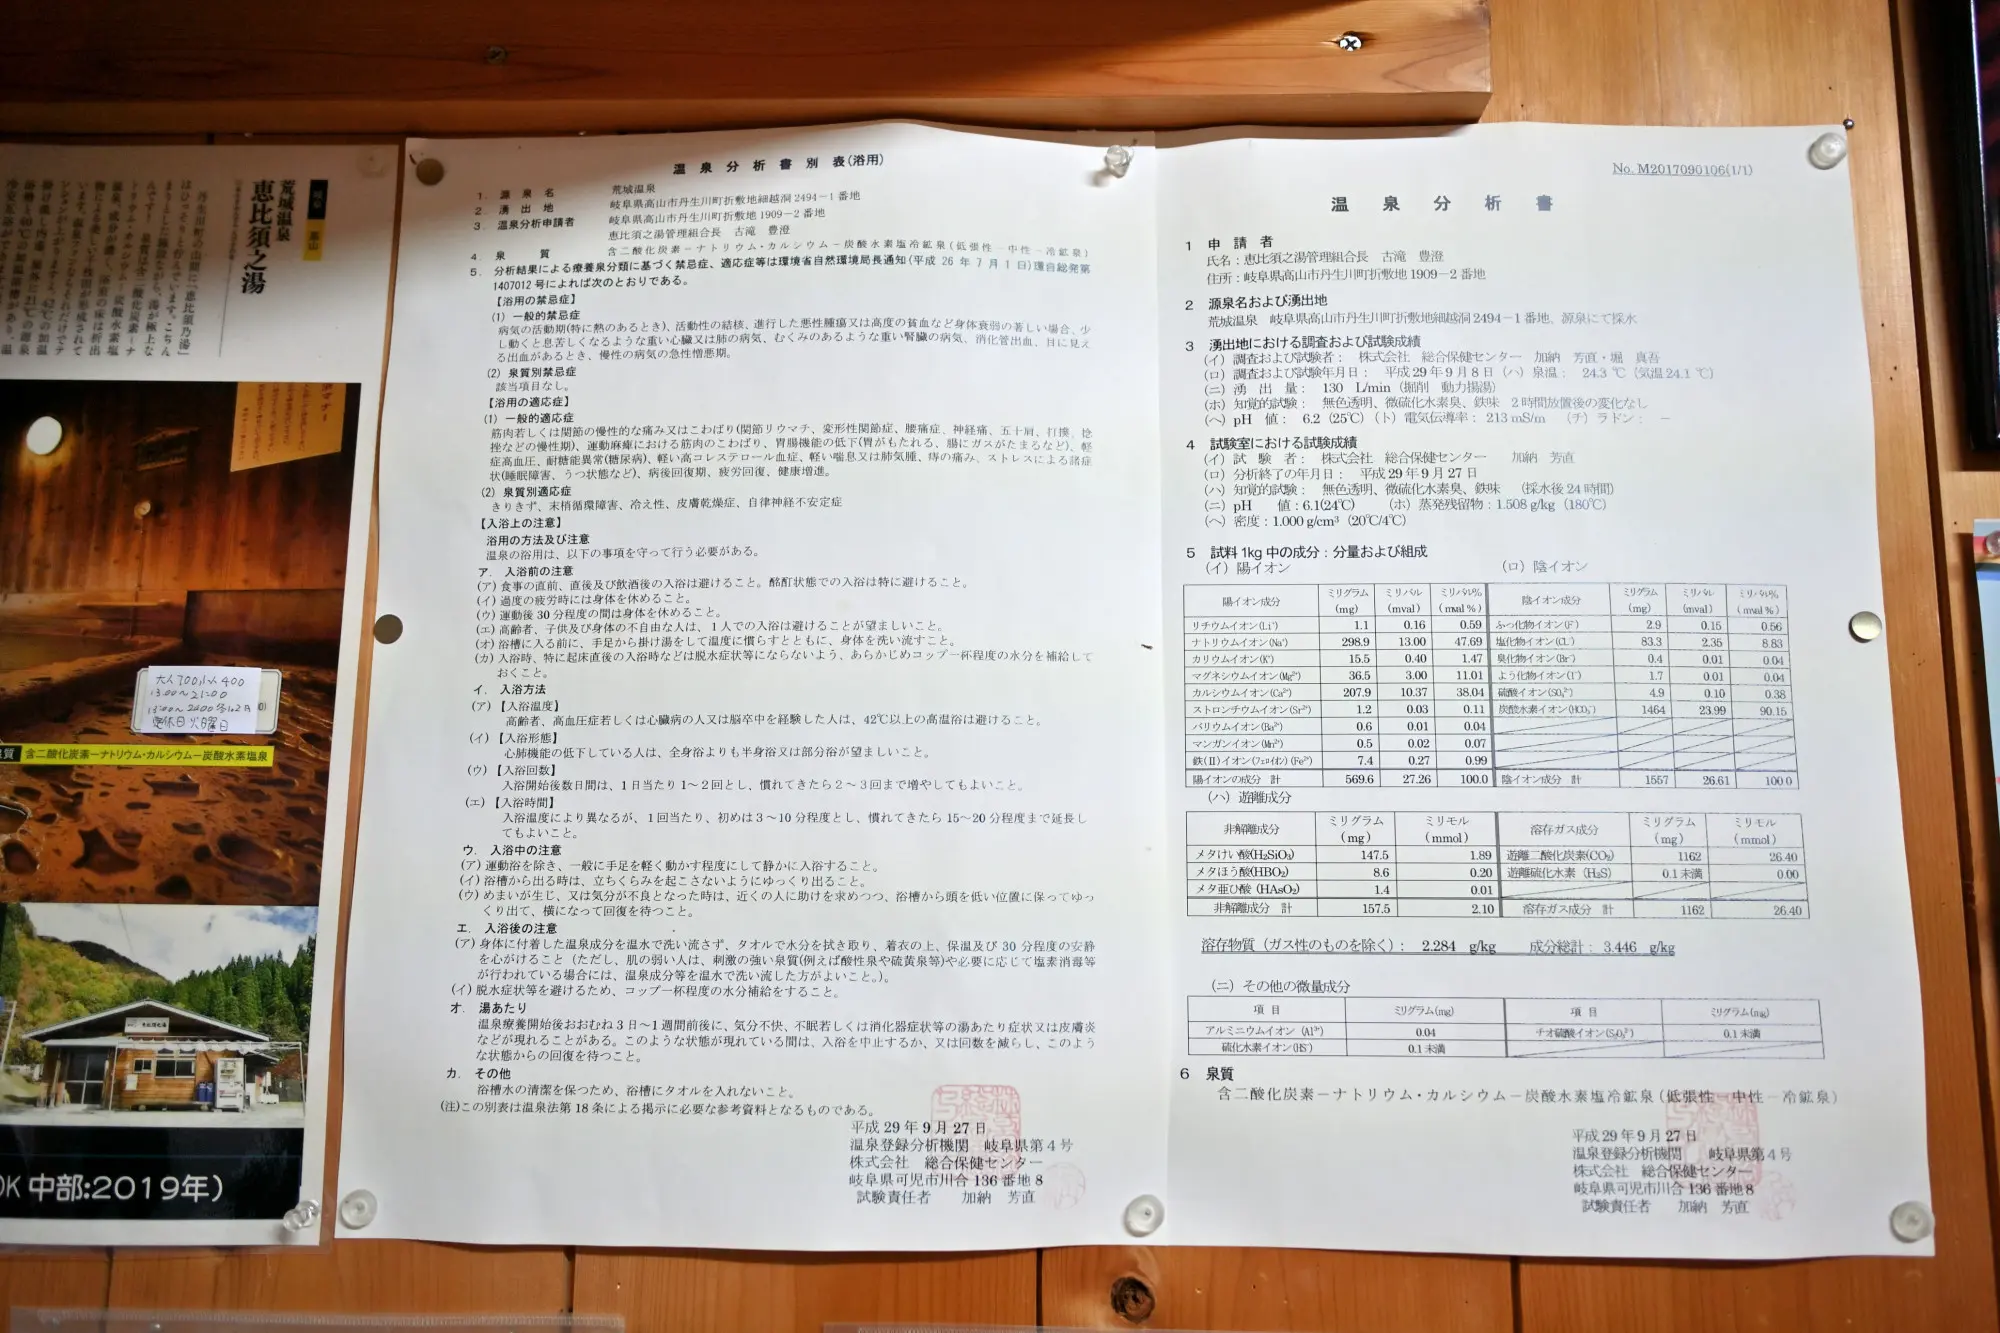 岐阜
高山
荒城温泉
恵比須之湯
大人700小人400
13:00〜21:00
定休日火曜日
泉質 含二酸化炭素ーナトリウム・カルシウムー炭酸水素塩泉
OK 中部:2019年)
温泉分析書別表(浴用)
1. 源泉名 荒城温泉
岐阜県高山市丹生川町折敷地細越洞2494−1番地
2. 湧出地 岐阜県高山市丹生川町折敷地1909−2番地
3. 温泉分析申請者 恵比須之湯管理組合長 古滝 豊澄
4. 泉質 含二酸化炭素−ナトリウム・カルシウム−炭酸水素塩冷鉱泉(低張性−中性−冷鉱泉)
5. 分析結果による療養泉分類に基づく禁忌症、適応症等は環境省自然環境局長通知(平成26年7月1日)環自総発第
1407012号によれば次のとおりである。
【浴用の禁忌症】
(1) 一般的禁忌症
病気の活動期(特に熱のあるとき)、活動性の結核、進行した悪性腫瘍又は高度の貧血など身体衰弱の著しい場合、少
し動くと息苦しくなるような重い心臓又は肺の病気、むくみのあるような重い腎臓の病気、消化管出血、目に見え
る出血があるとき、慢性の病気の急性憎悪期。
(2) 泉質別禁忌症
該当項目なし。
【浴用の適応症】
(1) 一般的適応症
筋肉若しくは関節の慢性的な痛み又はこわばり(関節リウマチ、変形性関節症、腰痛症、神経痛、五十肩、打撲、捻
挫などの慢性期)、運動麻痺における筋肉のこわばり、胃腸機能の低下(胃がもたれる、腸にガスがたまるなど)、軽
症高血圧、耐糖能異常(糖尿病)、軽い高コレステロール血症、軽い喘息又は肺気腫、痔の痛み、ストレスによる諸症
状(睡眠障害、うつ状態など)、病後回復期、疲労回復、健康増進。
(2) 泉質別適応症
きりきず、末梢循環障害、冷え性、皮膚乾燥症、自律神経不安定症
【入浴上の注意】
浴用の方法及び注意
温泉の浴用は、以下の事項を守って行う必要がある。
ア. 入浴前の注意
(ア) 食事の直前、直後及び飲酒後の入浴は避けること。酩酊状態での入浴は特に避けること。
(イ) 過度の疲労時には身体を休めること。
(ウ) 運動後30分程度の間は身体を休めること。
(エ) 高齢者、子供及び身体の不自由な人は、1人での入浴は避けることが望ましいこと。
(オ) 浴槽に入る前に、手足から掛け湯をして温度に慣らすとともに、身体を洗い流すこと。
(カ) 入浴時、特に起床直後の入浴時などは脱水症状等にならないよう、あらかじめコップ一杯程度の水分を補給して
おくこと。
イ. 入浴方法
(ア) 【入浴温度】
高齢者、高血圧症若しくは心臓病の人又は脳卒中を経験した人は、42℃以上の高温浴は避けること。
(イ) 【入浴形態】
心肺機能の低下している人は、全身浴よりも半身浴又は部分浴が望ましいこと。
(ウ) 【入浴回数】
入浴開始後数日間は、1日当たり1〜2回とし、慣れてきたら2〜3回まで増やしてもよいこと。
(エ) 【入浴時間】
入浴温度により異なるが、1回当たり、初めは3〜10分程度とし、慣れてきたら15〜20分程度まで延長し
てもよいこと。
ウ. 入浴中の注意
(ア) 運動浴を除き、一般に手足を軽く動かす程度にして静かに入浴すること。
(イ) 浴槽から出る時は、立ちくらみを起こさないようにゆっくり出ること。
(ウ) めまいが生じ、又は気分が不良となった時は、近くの人に助けを求めつつ、浴槽から頭を低い位置に保ってゆっ
くり出て、横になって回復を待つこと。
エ. 入浴後の注意
(ア) 身体に付着した温泉成分を温水で洗い流さず、タオルで水分を拭き取り、着衣の上、保温及び30分程度の安静
を心がけること(ただし、肌の弱い人は、刺激の強い泉質(例えば酸性泉や硫黄泉等)や必要に応じて塩素消毒等
が行われている場合には、温泉成分等を温水で洗い流した方がよいこと。)。
(イ) 脱水症状等を避けるため、コップ一杯程度の水分補給をすること。
オ. 湯あたり
温泉療養開始後おおむね3日〜1週間前後に、気分不快、不眠若しくは消化器症状等の湯あたり症状又は皮膚炎
などが現れることがある。このような状態が現れている間は、入浴を中止するか、又は回数を減らし、このよう
な状態からの回復を待つこと。
カ. その他
浴槽水の清潔を保つため、浴槽にタオルを入れないこと。
(注)この別表は温泉法第18条による掲示に必要な参考資料となるものである。
平成29年9月27日
温泉登録分析機関 岐阜県第4号
株式会社 総合保健センター
岐阜県可児市川合136番地8
試験責任者 加納 芳直
No. M2017090106(1/1)
温泉分析書
1 申請者
氏名：恵比須之湯管理組合長 古滝 豊澄
住所：岐阜県高山市丹生川町折敷地1909−2番地
2 源泉名および湧出地
荒城温泉 岐阜県高山市丹生川町折敷地細越洞2494−1番地、源泉にて採水
3 湧出地における調査および試験成績
(イ) 調査および試験者： 株式会社 総合保健センター 加納 芳直・堀 真吾
(ロ) 調査および試験年月日： 平成29年9月8日 (ハ) 泉温： 24.3 ℃ (気温24.1 ℃)
(ニ) 湧出量： 130 L/min (掘削 動力揚湯)
(ホ) 知覚的試験： 無色透明、微硫化水素臭、鉄味 2時間放置後の変化なし
(ヘ) pH 値： 6.2 (25℃) (ト) 電気伝導率： 213 mS/m (チ) ラドン： −
4 試験室における試験成績
(イ) 試験者： 株式会社 総合保健センター 加納 芳直
(ロ) 分析終了の年月日： 平成29年9月27日
(ハ) 知覚的試験： 無色透明、微硫化水素臭、鉄味 (採水後24時間)
(ニ) pH 値：6.1(24℃) (ホ) 蒸発残留物：1.508 g/kg (180℃)
(ヘ) 密度：1.000 g/cm³ (20℃/4℃)
5 試料1kg中の成分：分量および組成
(イ) 陽イオン (ロ) 陰イオン
陽イオン成分 ミリグラム(mg) ミリバル(mval) ミリバル%(mval%) 陰イオン成分 ミリグラム(mg) ミリバル(mval) ミリバル%(mval%)
リチウムイオン(Li⁺) 1.1 0.16 0.59 ふっ化物イオン(F⁻) 2.9 0.15 0.56
ナトリウムイオン(Na⁺) 298.9 13.00 47.69 塩化物イオン(CL⁻) 83.3 2.35 8.83
カリウムイオン(K⁺) 15.5 0.40 1.47 臭化物イオン(Br⁻) 0.4 0.01 0.04
マグネシウムイオン(Mg²⁺) 36.5 3.00 11.01 よう化物イオン(I⁻) 1.7 0.01 0.04
カルシウムイオン(Ca²⁺) 207.9 10.37 38.04 硫酸イオン(SO₄²⁻) 4.9 0.10 0.38
ストロンチウムイオン(Sr²⁺) 1.2 0.03 0.11 炭酸水素イオン(HCO₃⁻) 1464 23.99 90.15
バリウムイオン(Ba²⁺) 0.6 0.01 0.04
マンガンイオン(Mn²⁺) 0.5 0.02 0.07
鉄(Ⅱ)イオン(フェロイオン)(Fe²⁺) 7.4 0.27 0.99
陽イオンの成分 計 569.6 27.26 100.0 陰イオン成分 計 1557 26.61 100.0
(ハ) 遊離成分
非解離成分 ミリグラム(mg) ミリモル(mmol) 溶存ガス成分 ミリグラム(mg) ミリモル(mmol)
メタけい酸(H₂SiO₃) 147.5 1.89 遊離二酸化炭素(CO₂) 1162 26.40
メタほう酸(HBO₂) 8.6 0.20 遊離硫化水素 (H₂S) 0.1未満 0.00
メタ亜ひ酸 (HAsO₂) 1.4 0.01
非解離成分 計 157.5 2.10 溶存ガス成分 計 1162 26.40
溶存物質(ガス性のものを除く)： 2.284 g/kg 成分総計： 3.446 g/kg
(ニ) その他の微量成分
項目 ミリグラム(mg) 項目 ミリグラム(mg)
アルミニウムイオン (Al³⁺) 0.04 チオ硫酸イオン(S₂O₃²⁻) 0.1未満
硫化水素イオン(HS⁻) 0.1未満
6 泉質
含二酸化炭素−ナトリウム・カルシウム−炭酸水素塩冷鉱泉(低張性−中性−冷鉱泉)
平成29年9月27日
温泉登録分析機関 岐阜県第4号
株式会社 総合保健センター
岐阜県可児市川合136番地8
試験責任者 加納 芳直